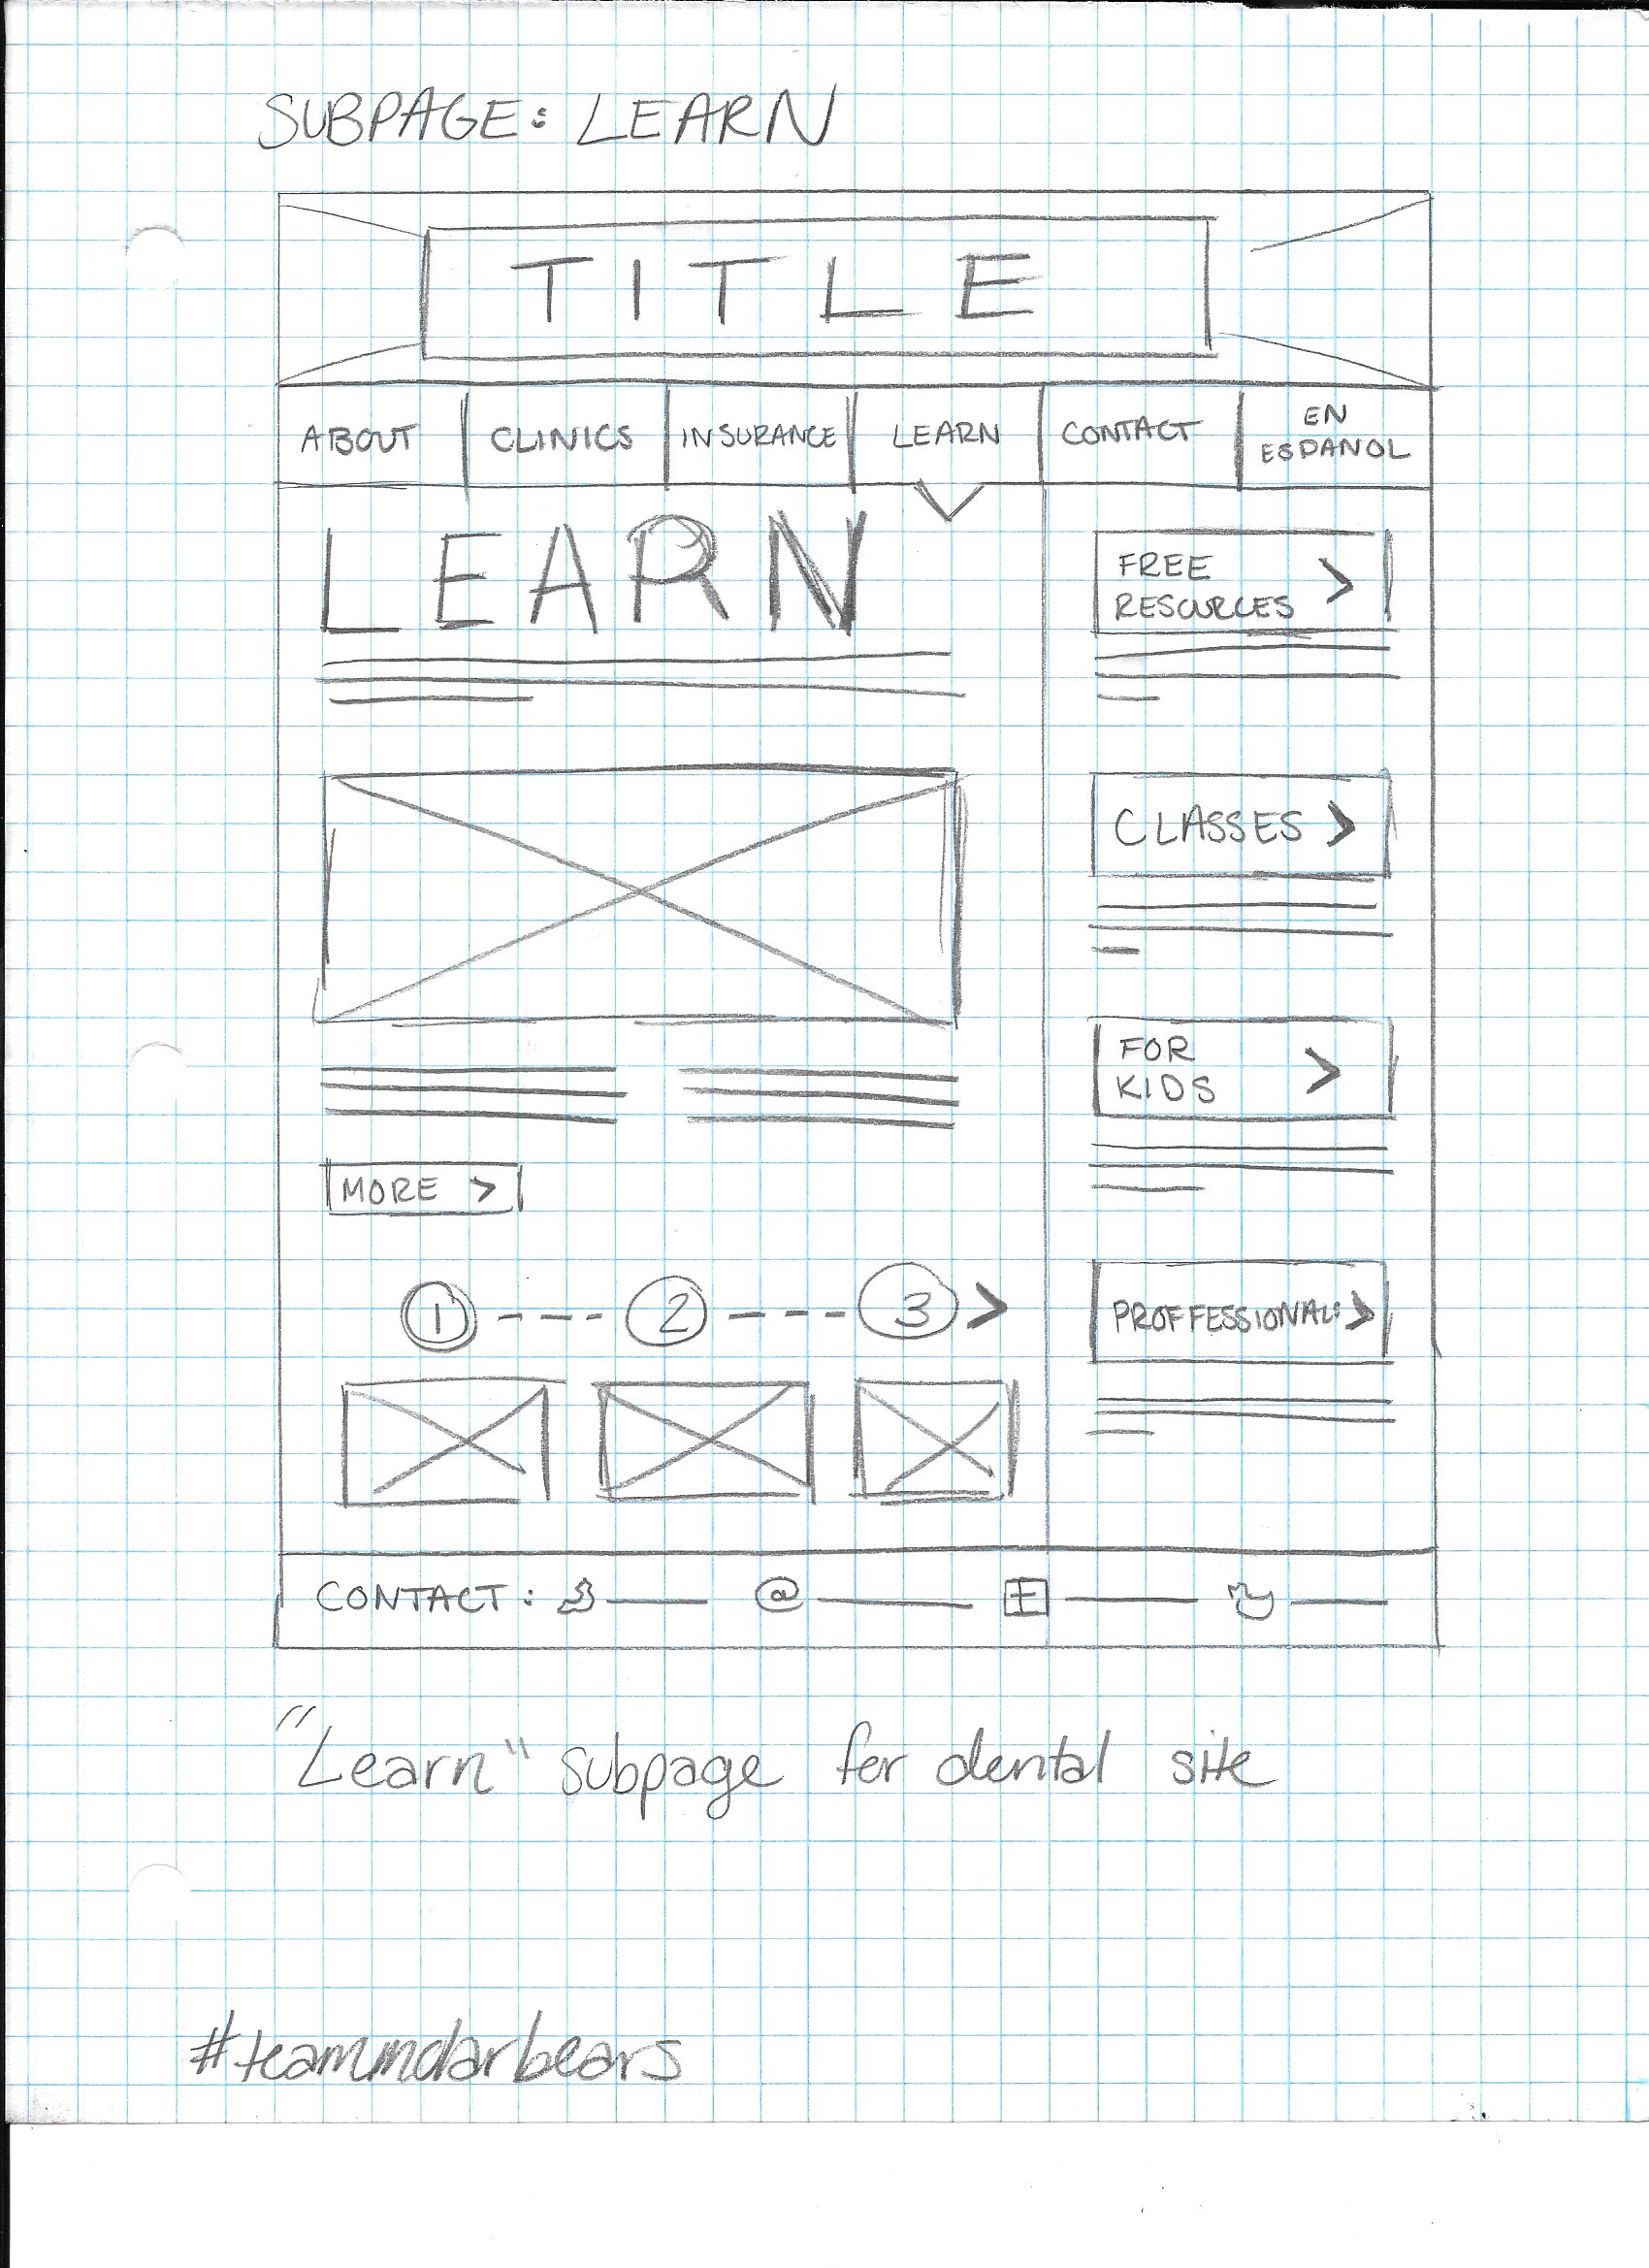 SUBPAGE: LEARN
TITLE
ABOUT
CLINICS
INSURANCE
LEARN
CONTACT
EN
ESPANOL
LEARN
FREE
RESOURCES >
CLASSES >
FOR
KIDS >
MORE >
1 --- 2 --- 3 >
PROFFESSIONALS >
CONTACT: @
"Learn" subpage for dental site